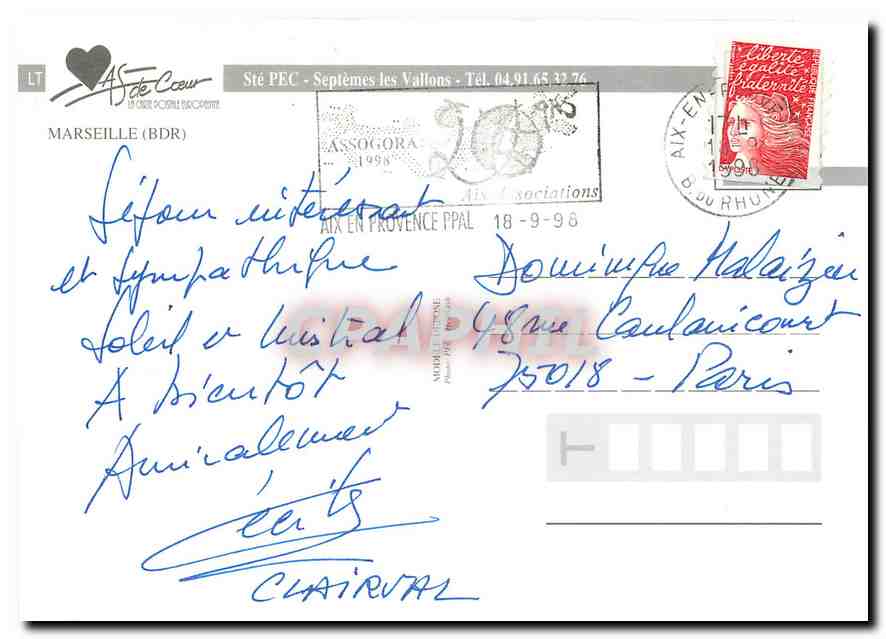 LT
AS de Cœur
LA CARTE POSTALE EUROPEENNE
Sté PEC - Septèmes les Vallons - Tél. 04.91.65.32.76
MARSEILLE (BDR)
ASSOGORA
1998
Aix Associations
AIX EN PROVENCE PPAL 18-9-98
AIX-EN-PROVENCE
17H
18-9
1998
B. DU RHONE
liberté
égalité
fraternité
Séjour intéressant
et sympathique
Soleil et mistral
A bientôt
Amicalement
CLAIRVAL
Dominique Malaizier
48 rue Caulaincourt
75018 - Paris
MODELE DEPOSE
CPAPHIL